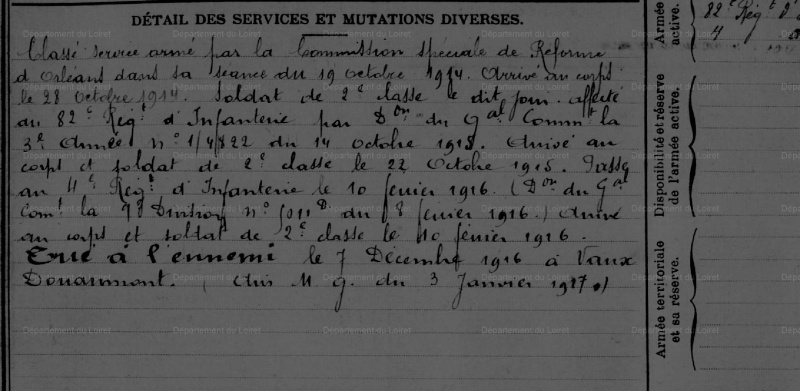 DÉTAIL DES SERVICES ET MUTATIONS DIVERSES.
Classé service armé par la Commission spéciale de Réforme
d'Orléans dans sa séance du 19 octobre 1914. Arrivé au corps
le 28 octobre 1914. Soldat de 2e classe le dit jour. Affecté
au 82e Régt d'Infanterie par Don du Gal Commt la
3e Armée no 1/4822 du 14 octobre 1915. Arrivé au
corps et soldat de 2e classe le 22 Octobre 1915. Passé
au 4e Régt d'Infanterie le 10 février 1916. (Don du Gal
Comt la 9e Division no du 8 février 1916.) Arrivé
au corps et soldat de 2e classe le 10 février 1916.
Tué à l'ennemi le 7 Décembre 1916 à Vaux
Douaumont. (Avis M G. du 3 Janvier 1917.)
Armée
active.
82e Régt d'
4
Disponibilité et réserve
de l'armée active.
Armée territoriale
et sa réserve.
Département du Loiret